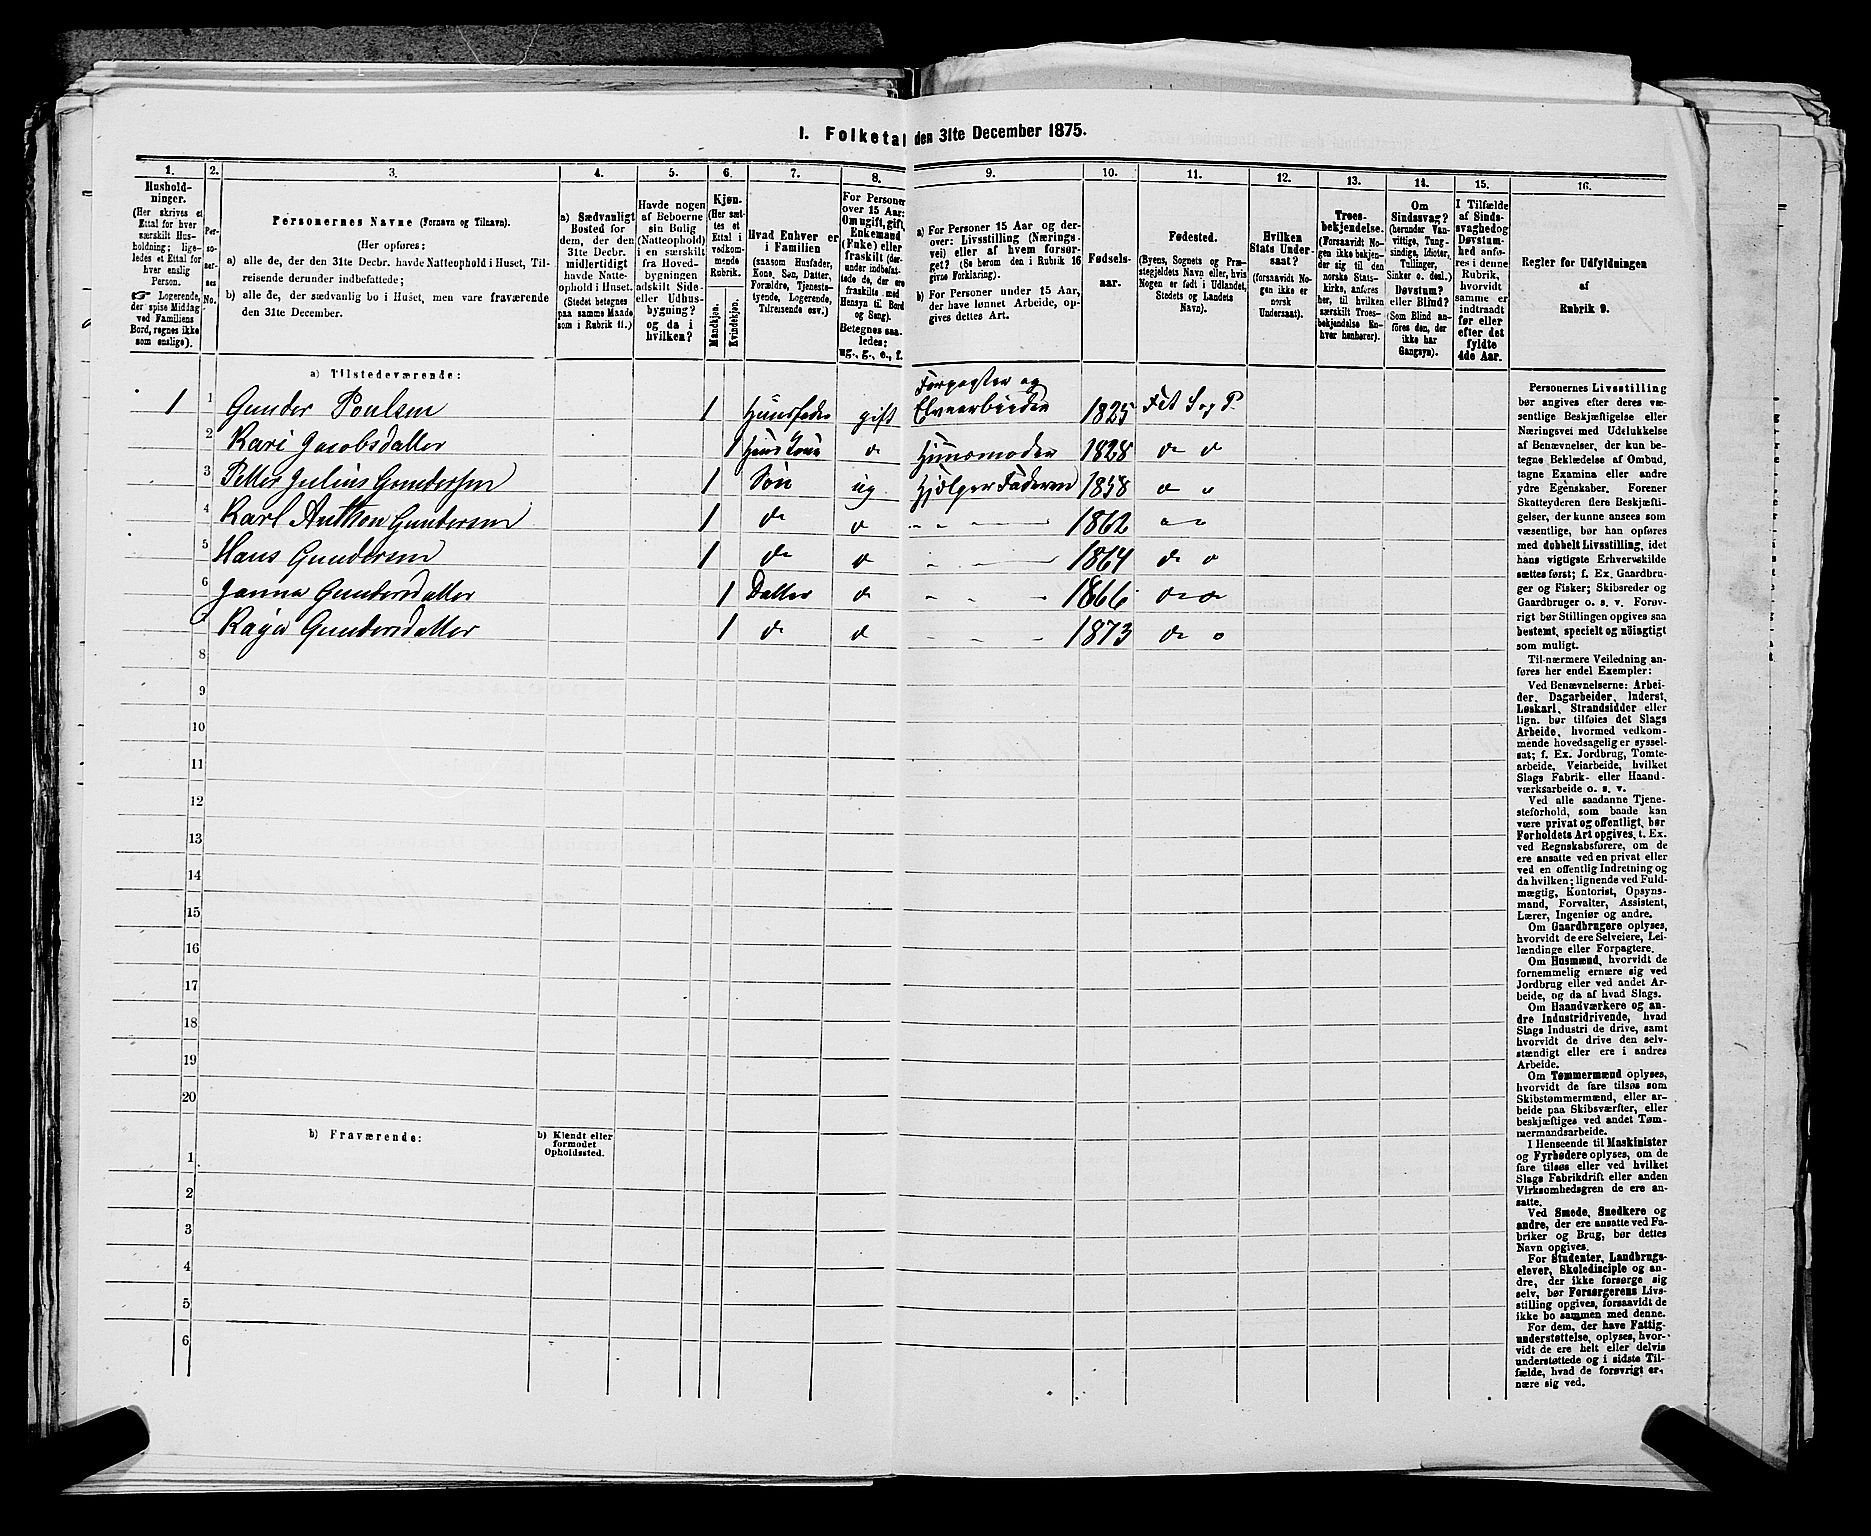 1. Folketal den 31te December 1875.
1. 2. 3. 4. 5. 6. 7. 8. 9. 10. 11. 12. 13. 14. 15. 16.
Hushold-
ninger.
(Her skrives et
Ettal for hver
særskilt Hus-
holdning; lige-
ledes et Ettal for
hver enslig
Person.
☞ Logerende,
der spise Middag
ved Familiens
Bord, regnes ikke
som enslige).
Per-
so-
ner-
nes
No.
Personernes Navne (Fornavn og Tilnavn).
(Her opføres:
a) alle de, der den 31te Decbr. havde Natteophold i Huset, Til-
reisende derunder indbefattede;
b) alle de, der sædvanlig bo i Huset, men vare fraværende
den 31te December.
a) Sædvanligt
Bosted for
dem, der den
31te Decbr.
midlertidigt
havde Natte-
ophold i Huset.
(Stedet betegnes
paa samme Maade
som i Rubrik 11.)
Havde nogen
af Beboerne
sin Bolig
(Natteophold)
i en særskilt
fra Hoved-
bygningen
adskilt Side-
eller Udhus-
bygning?
og da i
hvilken?
Kjøn.
(Her sæt-
tes et
Ettal i
vedkom-
mende
Rubrik.
Mandkjøn.
Kvindekjøn.
Hvad Enhver er
i Familien
(saasom Husfader,
Kone, Søn, Datter,
Forældre, Tjeneste-
tyende, Logerende,
Tilreisende osv.)
For Personer
over 15 Aar:
Om ugift, gift,
Enkemand
(Enke) eller
fraskilt (der-
under indbefat-
tede de, der ere
fraskilte med
Hensyn til Bord
og Seng).
Betegnes saa-
ledes:
ug., g., e., f.
a) For Personer 15 Aar og der-
over: Livsstilling (Nærings-
vei) eller af hvem forsør-
get? (Se herom den i Rubrik 16
givne Forklaring).
b) For Personer under 15 Aar,
der have lønnet Arbeide, op-
gives dettes Art.
Fødsels-
aar.
Fødested.
(Byens, Sognets og Præ-
stegjeldets Navn eller, hvis
Nogen er født i Udlandet,
Stedets og Landets
Navn).
Hvilken
Stats Under-
saat?
(forsaavidt No-
gen ikke er
norsk
Undersaat).
Troes-
bekjendelse.
(Forsaavidt No-
gen ikke bekjen-
der sig til den
norske Stats-
kirke, anføres
her, til hvilken
særskilt Troes-
bekjendelse En-
hver henhører).
Om
Sindssvag?
(herunder Van-
vittige, Tung-
sindige, Idioter,
Tullinger,
Sinker o. desl.)
Døvstum?
eller Blind?
(Som Blind an-
føres den, der
ikke har
Gangsyn).
I Tilfælde
af Sinds-
svaghed og
Døvstum-
hed anfø-
res i denne
Rubrik,
hvorvidt
samme er
indtraadt
før eller
efter det
fyldte
4de Aar.
Regler for Udfyldningen
af
Rubrik 9.
a) Tilstedeværende:
1 1 Gunder Poulsen 1 Huusfader gift Forpagter og Elvearbeider 1825 Fet S og P.
2 Kari Jacobsdatter 1 Huuskone do Huusmoder 1828 do do
3 Petter Julius Gundersen 1 Søn ug Hjælper Faderen 1858 do "
4 Karl Anthon Gundersen 1 do do " " 1862 " "
5 Hans Gundersen 1 do do " " 1864 do do
6 Janna Gundersdatter 1 Datter do " " " 1866 do do
7 Kaja Gundersdatter 1 do do " " " 1873 do do
8
9
10
11
12
13
14
15
16
17
18
19
20
b) Fraværende:
b) Kjendt eller
formodet
Opholdssted.
1
2
3
4
5
6
Personernes Livsstilling
bør angives efter deres væ-
sentlige Beskjæftigelse eller
Næringsvei med Udelukkelse
af Benævnelser, der kun be-
tegne Beklædelse af Ombud,
tagne Examina eller andre
ydre Egenskaber. Forener
Skatteyderen flere Beskjæfti-
gelser, der kunne ansees som
væsentlige, bør han opføres
med dobbelt Livsstilling, idet
hans vigtigste Erhvervskilde
sættes først; f. Ex. Gaardbru-
ger og Fisker; Skibsreder og
Gaardbruger o. s. v. Forøv-
rigt bør Stillingen opgives saa
bestemt, specielt og nøiagtigt
som muligt.
Til nærmere Veiledning an-
føres her endel Exempler:
Ved Benævnelserne: Arbei-
der, Dagarbeider, Inderst,
Løskarl, Strandsidder eller
lign. bør tilføies det Slags
Arbeide, hvormed vedkom-
mende hovedsagelig er syssel-
sat; f. Ex. Jordbrug, Tomte-
arbeide, Veiarbeide, hvilket
Slags Fabrik- eller Haand-
værksarbeide o. s. v.
Ved alle saadanne Tjene-
steforhold, som baade kan
være privat og offentligt, bør
Forholdets Art opgives, t. Ex.
ved Regnskabsførere, om de
ere ansatte ved en privat eller
ved en offentlig Indretning og
da hvilken; lignende ved Fuld-
mægtig, Kontorist, Opsyns-
mand, Forvalter, Assistent,
Lærer, Ingeniør og andre.
Om Gaardbrugere oplyses,
hvorvidt de ere Selveiere, Lei-
lændinge eller Forpagtere.
Om Husmænd, hvorvidt de
fornemmelig ernære sig ved
Jordbrug eller ved andet Ar-
beide, og da af hvad Slags.
Om Haandværkere og an-
dre Industridrivende, hvad
Slags Industri de drive, samt
hvorvidt de drive den selv-
stændigt eller ere i andres
Arbeide.
Om Tømmermænd oplyses,
hvorvidt de fare tilsøs som
Skibstømmermænd, eller ar-
beide paa Skibsværfter, eller
beskjæftiges ved andet Tøm-
mermandsarbeide.
I Henseende til Maskinister
og Fyrbødere oplyses, om de
fare tilsøs eller ved hvilket
Slags Fabrikdrift eller anden
Virksomhedsgren de ere an-
satte.
Ved Smede, Snedkere og
andre, der ere ansatte ved Fa-
briker og Brug, bør dettes
Navn opgives.
For Studenter, Landbrugs-
elever, Skoledisciple og an-
dre, der ikke forsørge sig
selv, bør Forsørgerens Livs-
stilling opgives, forsaavidt de
ikke bo sammen med denne.
For dem, der have Fattig-
understøttelse, oplyses, hvor-
vidt de ere helt eller delvis
understøttede og i sidste Til-
fælde, hvad de forøvrigt er-
nære sig ved.